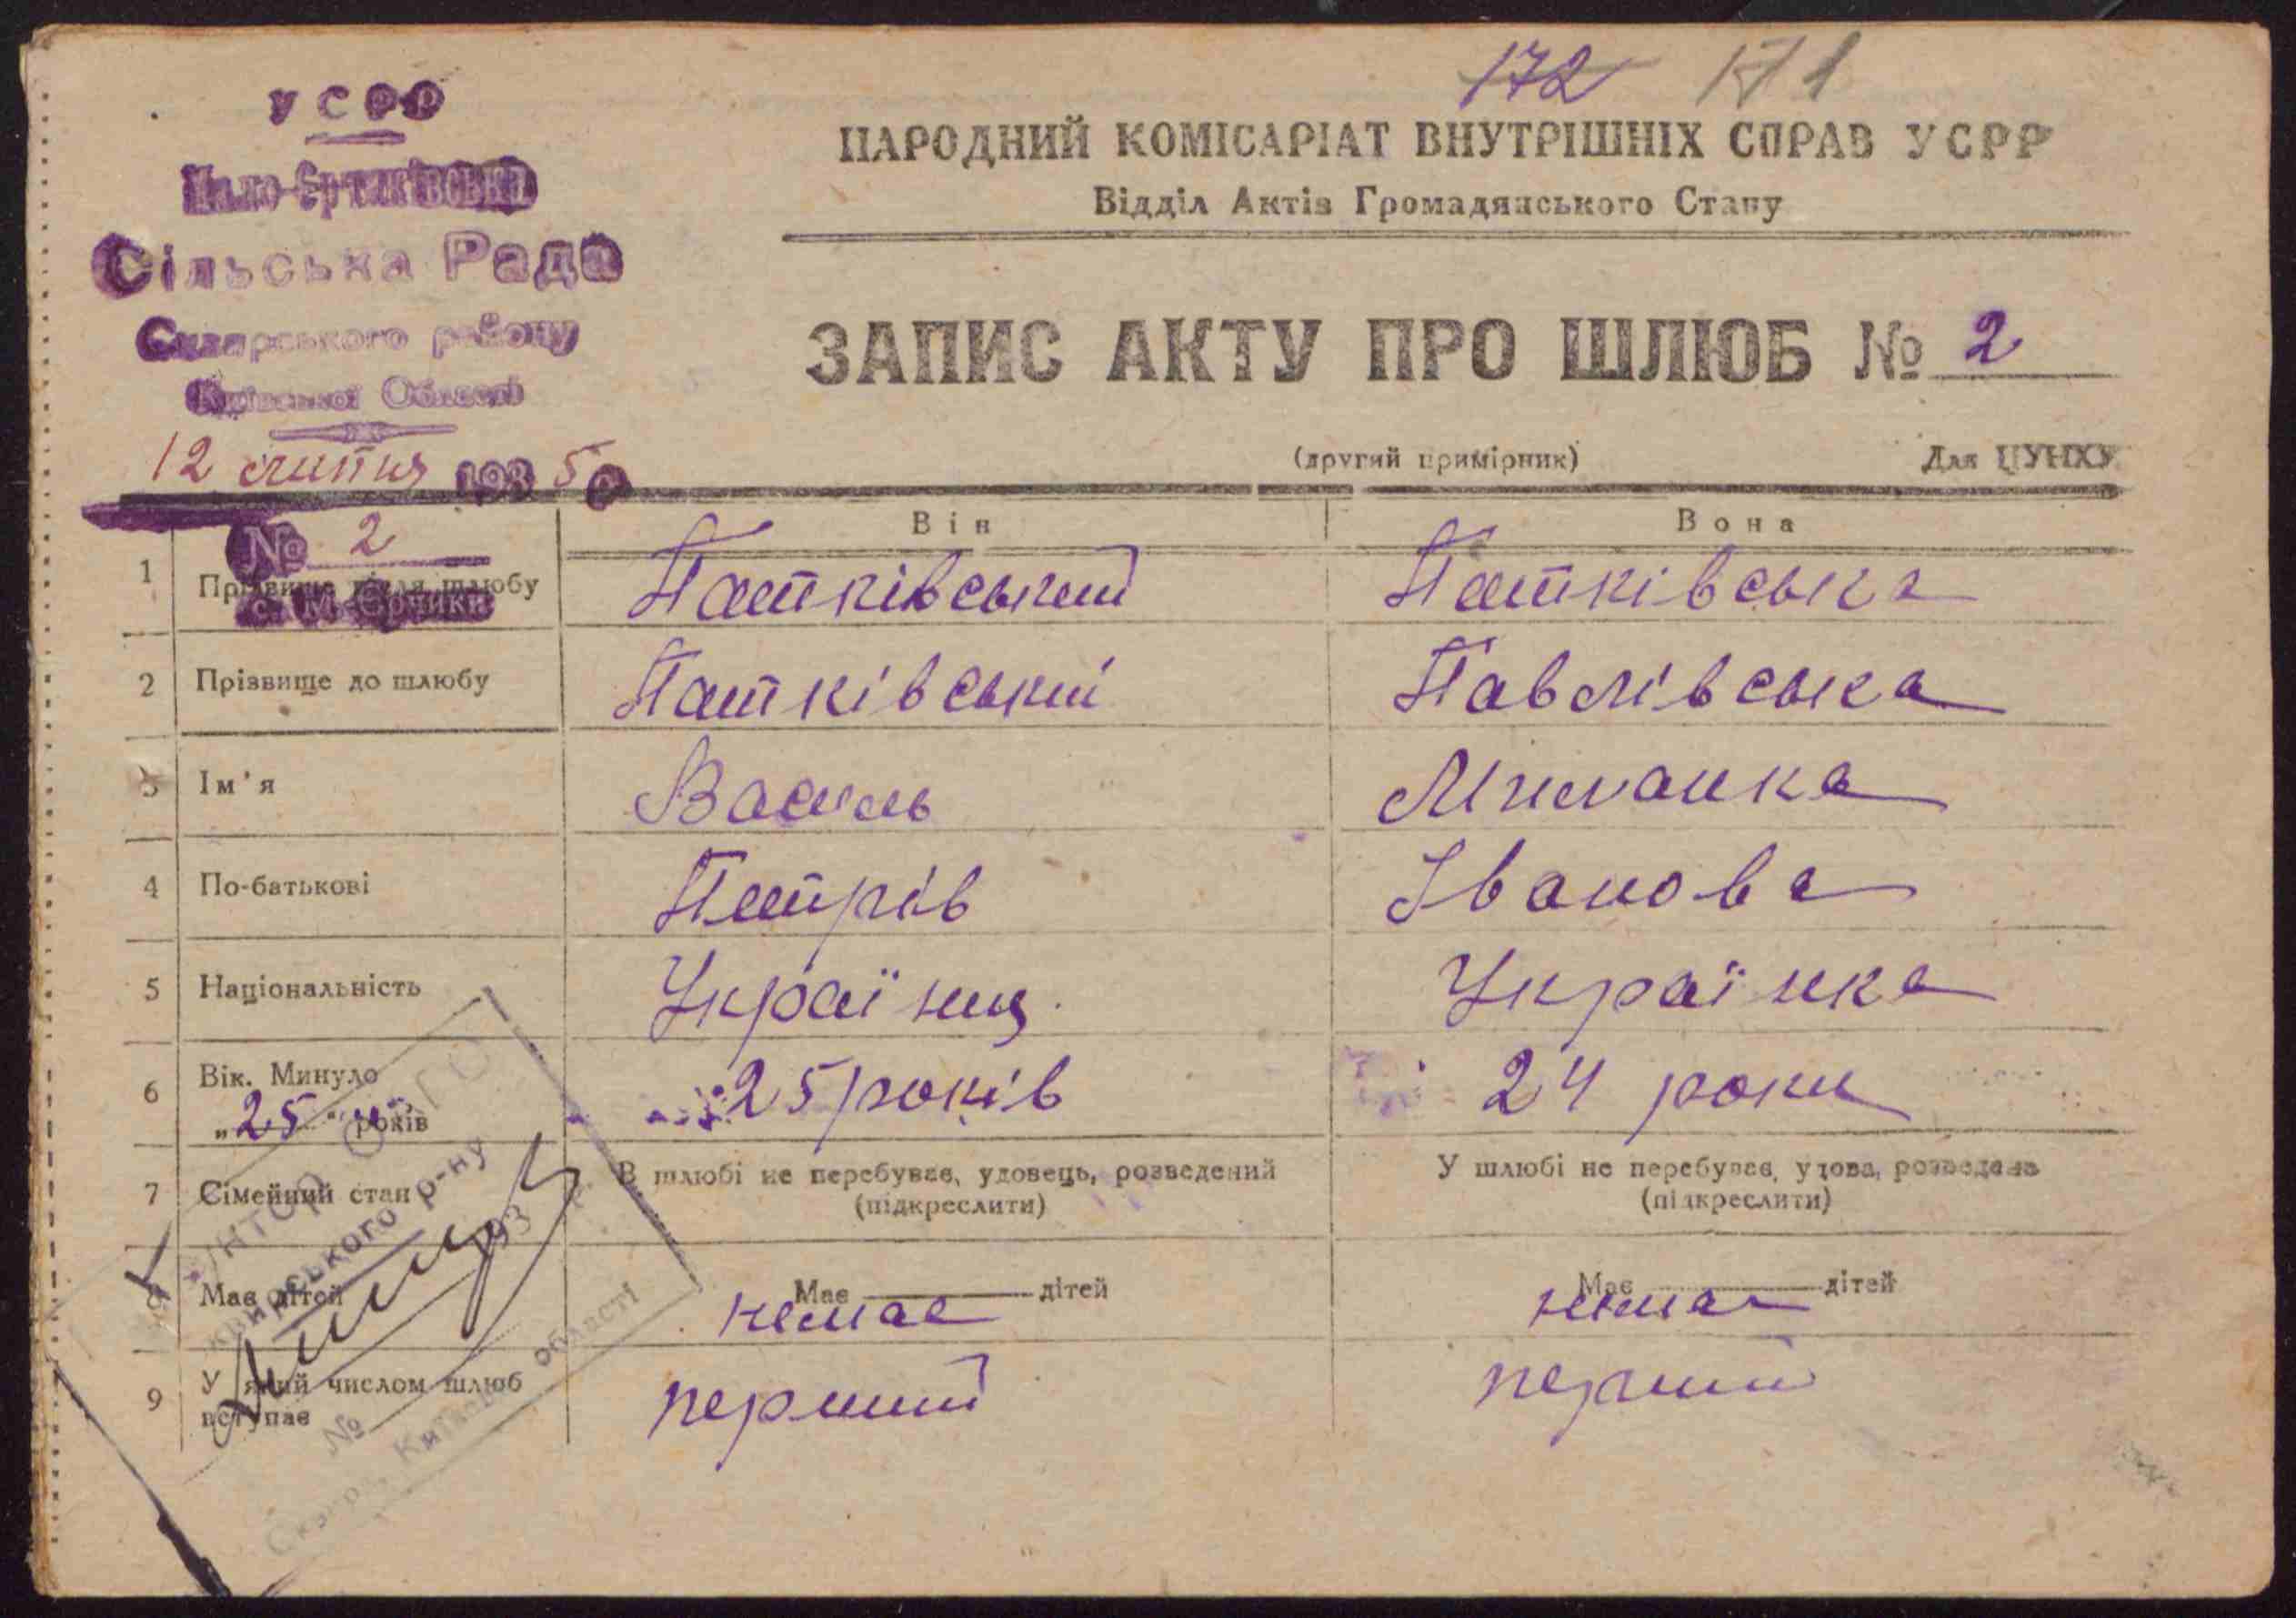 172 171
УСРР
Мало-Єрчиківська
Сільська Рада
Сквирського району
Київської Області
12 липня 1935 р
№ 2
с. М-Єрчики
НАРОДНИЙ КОМІСАРІАТ ВНУТРІШНІХ СПРАВ УСРР
Відділ Актів Громадянського Стану
ЗАПИС АКТУ ПРО ШЛЮБ № 2
(другий примірник) Для ЦУНХУ
Він Вона
1 Прізвище після шлюбу Патківський Патківська
2 Прізвище до шлюбу Патківський Павлівська
3 Ім'я Василь Миланка
4 По-батькові Петрів Іванова
5 Національність Українц Українка
6 Вік. Минуло 25 років 24 роки
„25 " років
7 Сімейний стан В шлюбі не перебуває, удовець, розведений У шлюбі не перебуває, удова, розведена
(підкреслити) (підкреслити)
8 Має дітей Має дітей Має дітей
немає немає
9 У який числом шлюб вступає перший перший
Сквирського р-ну
193
№
Сквира, Київської області